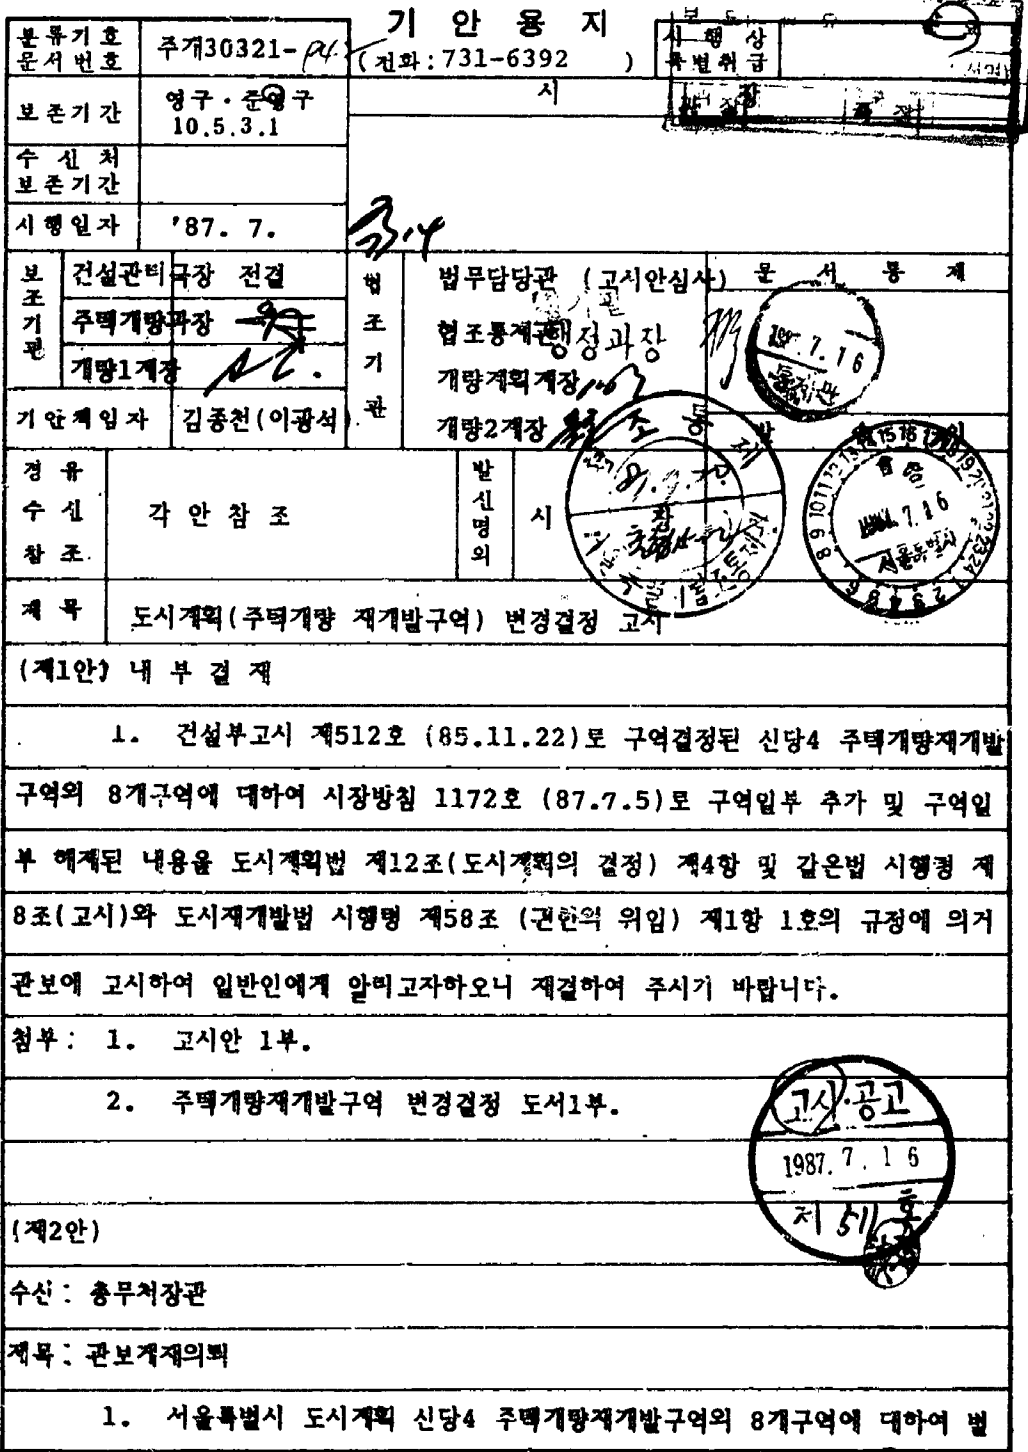 기 안 용 지
분류기호 문서번호
주개30321-
(전화:731-6392 )
시 행 상 특별취급
보존기간
영구·준영구
10.5.3.1
시
수 신 처 보존기간
시행일자
'87. 7.
보조기관
건설관리국장 전결
주택개량과장
개량1계장
기안책임자
김종천(이광석)
협조기관
법무담당관 (고시안심사)
협조통제관 행정과장
개량계획계장
개량2계장
문 서 통 제
1987.7.16
경 유
수 신
참 조
각 안 참 조
발신명의
시 장
1987.7.16
서울특별시
제 목
도시계획(주택개량 재개발구역) 변경결정 고시
(제1안) 내 부 결 재
1. 건설부고시 제512호 (85.11.22)로 구역결정된 신당4 주택개량재개발
구역외 8개구역에 대하여 시장방침 1172호 (87.7.5)로 구역일부 추가 및 구역일
부 해제된 내용을 도시계획법 제12조(도시계획의 결정) 제4항 및 같은법 시행령 제
8조(고시)와 도시재개발법 시행령 제58조 (권한의 위임) 제1항 1호의 규정에 의거
관보에 고시하여 일반인에게 알리고자하오니 재결하여 주시기 바랍니다.
첨부: 1. 고시안 1부.
2. 주택개량재개발구역 변경결정 도서1부.
고시·공고
1987. 7. 16
제 511 호
(제2안)
수신: 총무처장관
제목: 관보게재의뢰
1. 서울특별시 도시계획 신당4 주택개량재개발구역외 8개구역에 대하여 별